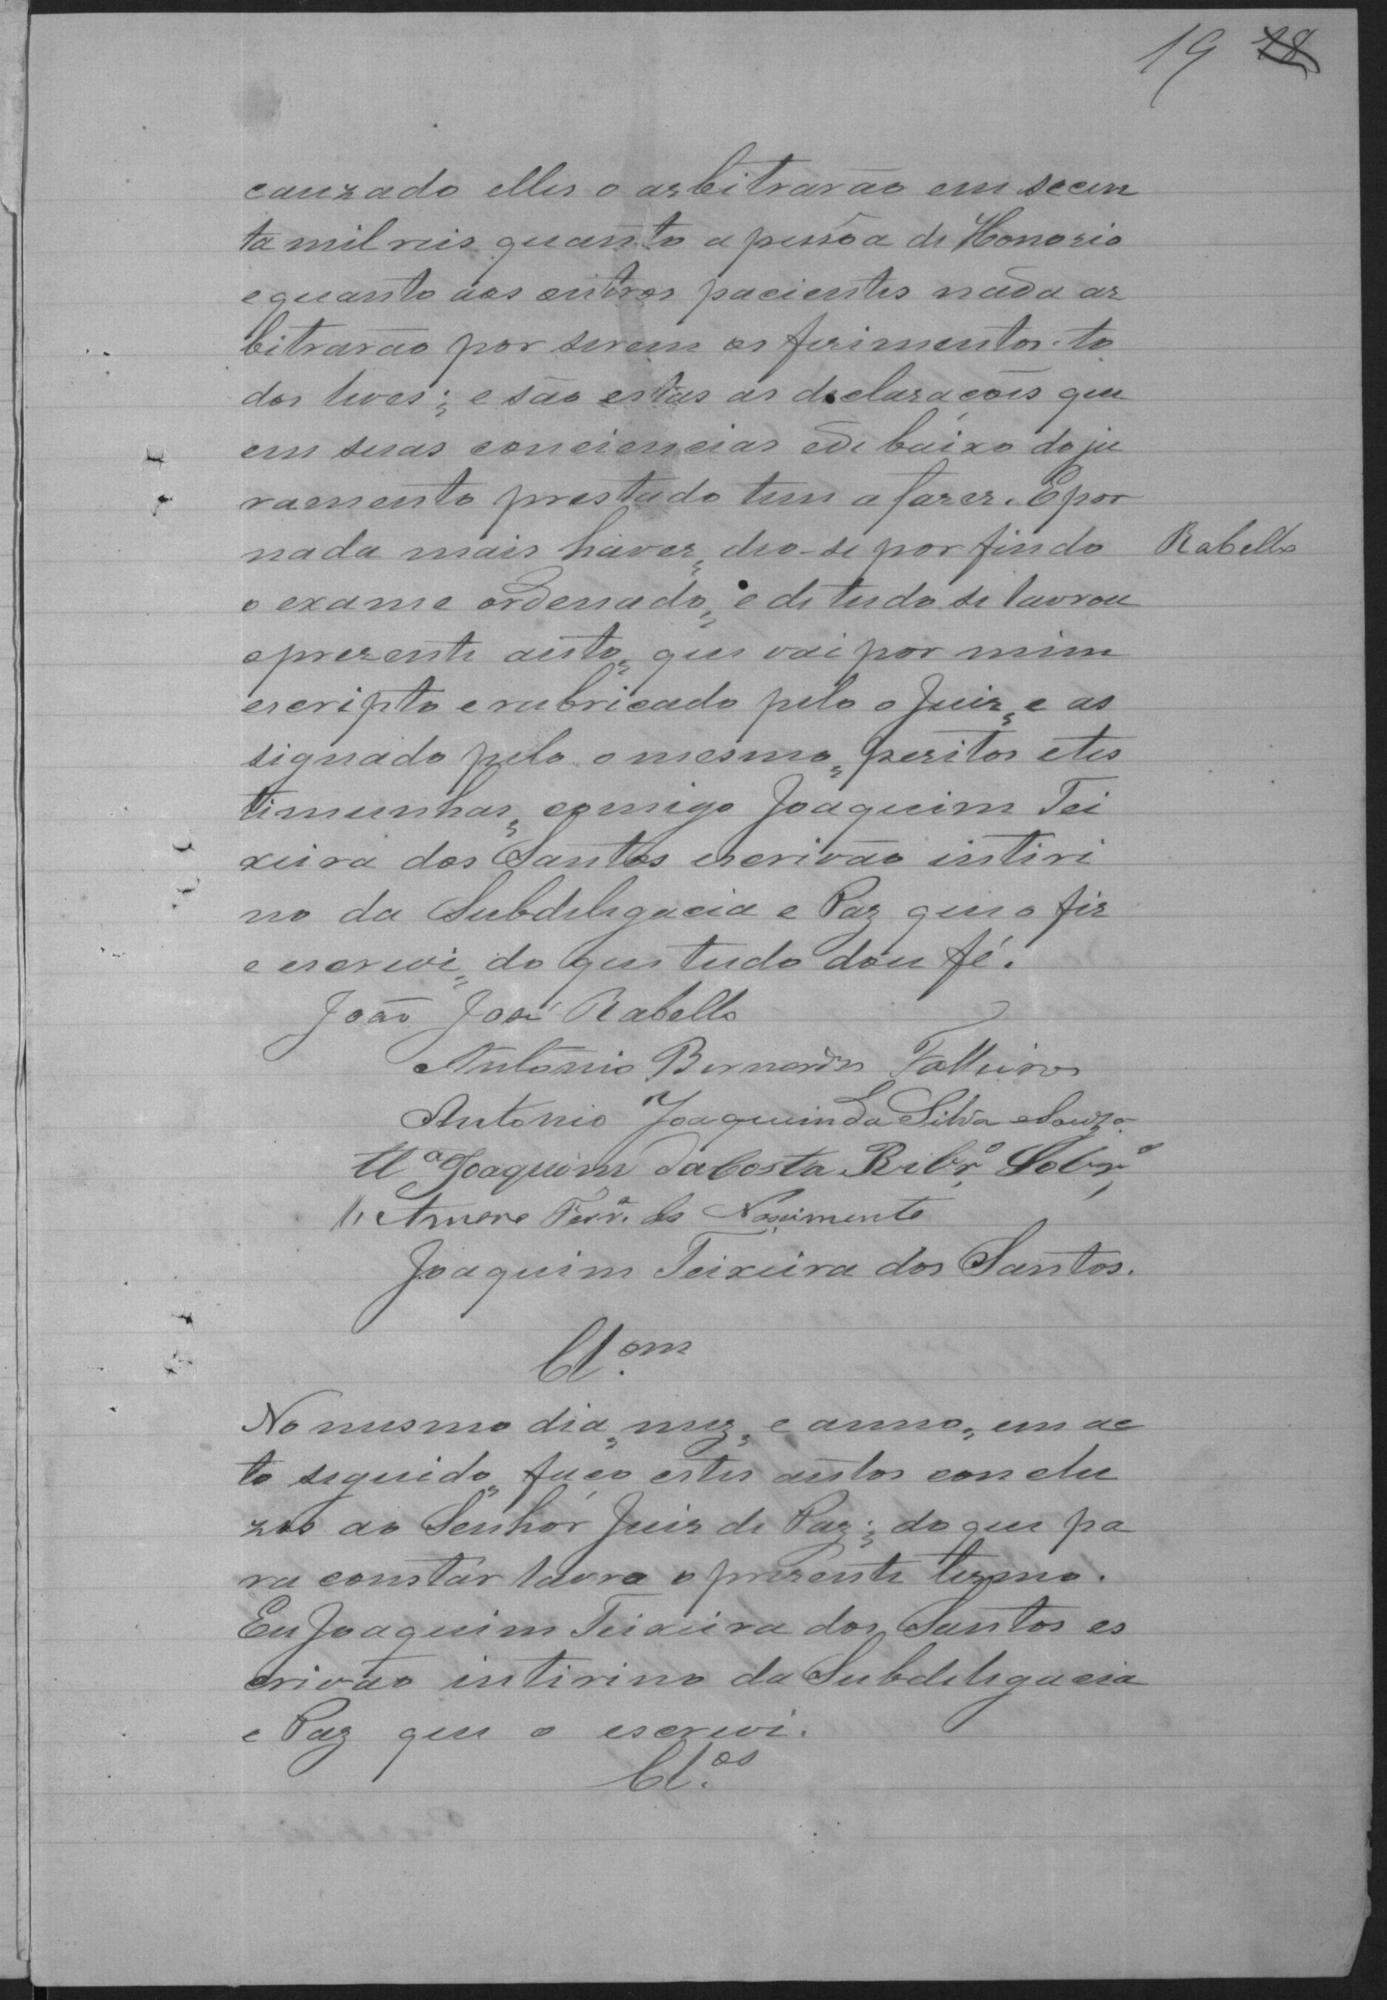 19 18
cauzado elles o arbitrarão em secen
ta mil reis quanto a pessôa de Honorio
e quanto aos outros pacientes nada ar
bitrarão por serem os ferimentos to
dos leves; e são estas as declaracões que
em suas conciencias e de baixo do ju
ramento prestado tem a fazer. E por
nada mais haver, deo-se por findo
Rabello
o exame ordenado, e de tudo se lavrou
o prezente auto, que vai por mim
escripto e rubricado pelo o Juiz, e as
signado pelo o mesmo, peritos e tes
timunhas, comigo Joaquim Tei
xeira dos Santos escrivão intiri
no da Subdelegacia e Paz que o fiz
e escrevi, do que tudo dou fé.
João José Rabello
Antonio Bernardes Falleiros
Antonio Joaquim da Silva e Souza
Joaquim da Costa Ribr.º Sobr.º
Ferr.ª do Nascimento
Joaquim Teixeira dos Santos.
Cl.om
No mesmo dia, mez, e anno, em ac
to seguido, faço estes autos conclu
zos ao Senhór Juiz de Paz; do que pa
ra constár lavro o prezente termo.
Eu Joaquim Teixeira dos Santos es
crivão intirino da Subdelegacia
e Paz que o escrevi.
Cl.os